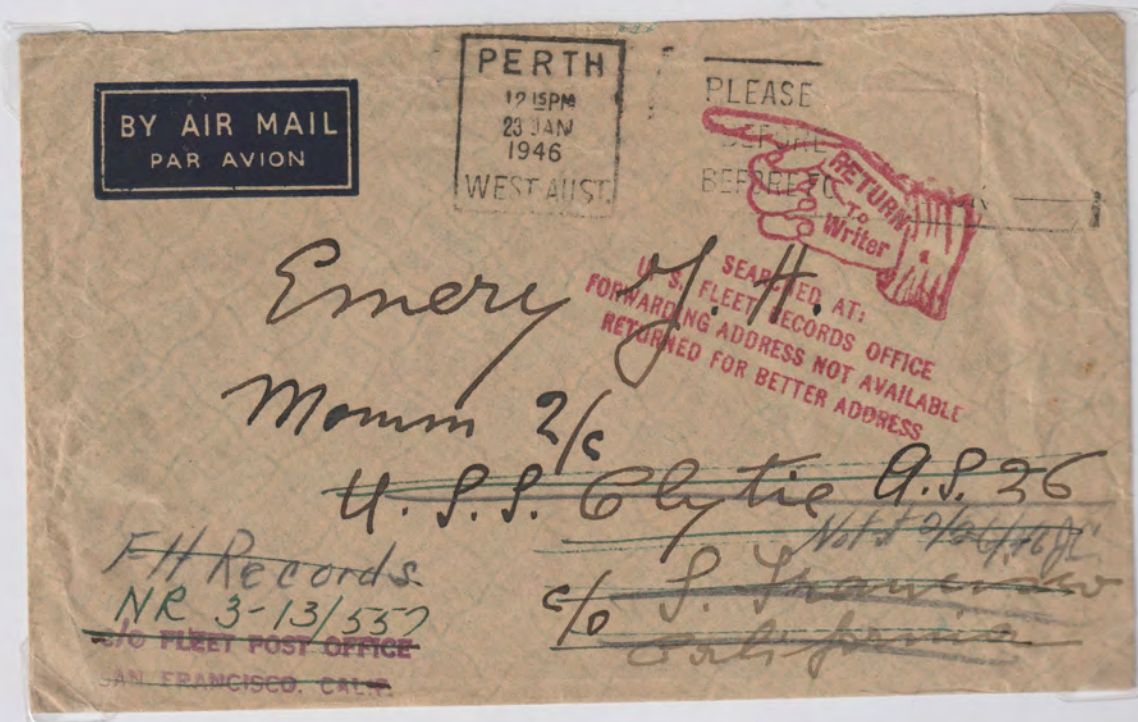 BY AIR MAIL
PAR AVION
PERTH
12 15PM
23 JAN
1946
WEST AUST.
PLEASE
BEFORE
BEFORE
RETURN
To
Writer
SEARCHED AT:
U. S. FLEET RECORDS OFFICE
FORWARDING ADDRESS NOT AVAILABLE
RETURNED FOR BETTER ADDRESS
Emery J. H.
Momm 2/c
U.S.S. Clytie A.S. 26
c/o S. Francisco
California
FH Records
NR 3-13/557
C/O FLEET POST OFFICE
SAN FRANCISCO, CALIF.